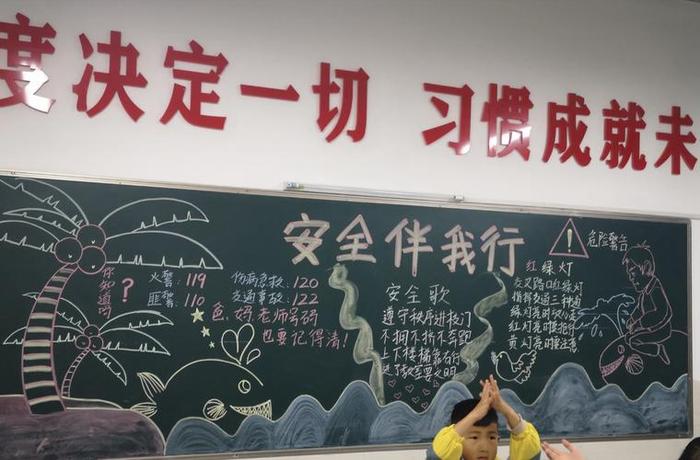 度决定一切 习惯成就未
安全伴我行
你知道吗
?
火警:119
匪警:110
伤病急救:120
交通事故:122
爸、妈、老师号码
也要记得清!
安全歌
遵守秩序进校门
不拥不挤不奔跑
上下楼梯靠右行
!
危险警告
红绿灯
交叉路口红绿灯
指挥交通三种通